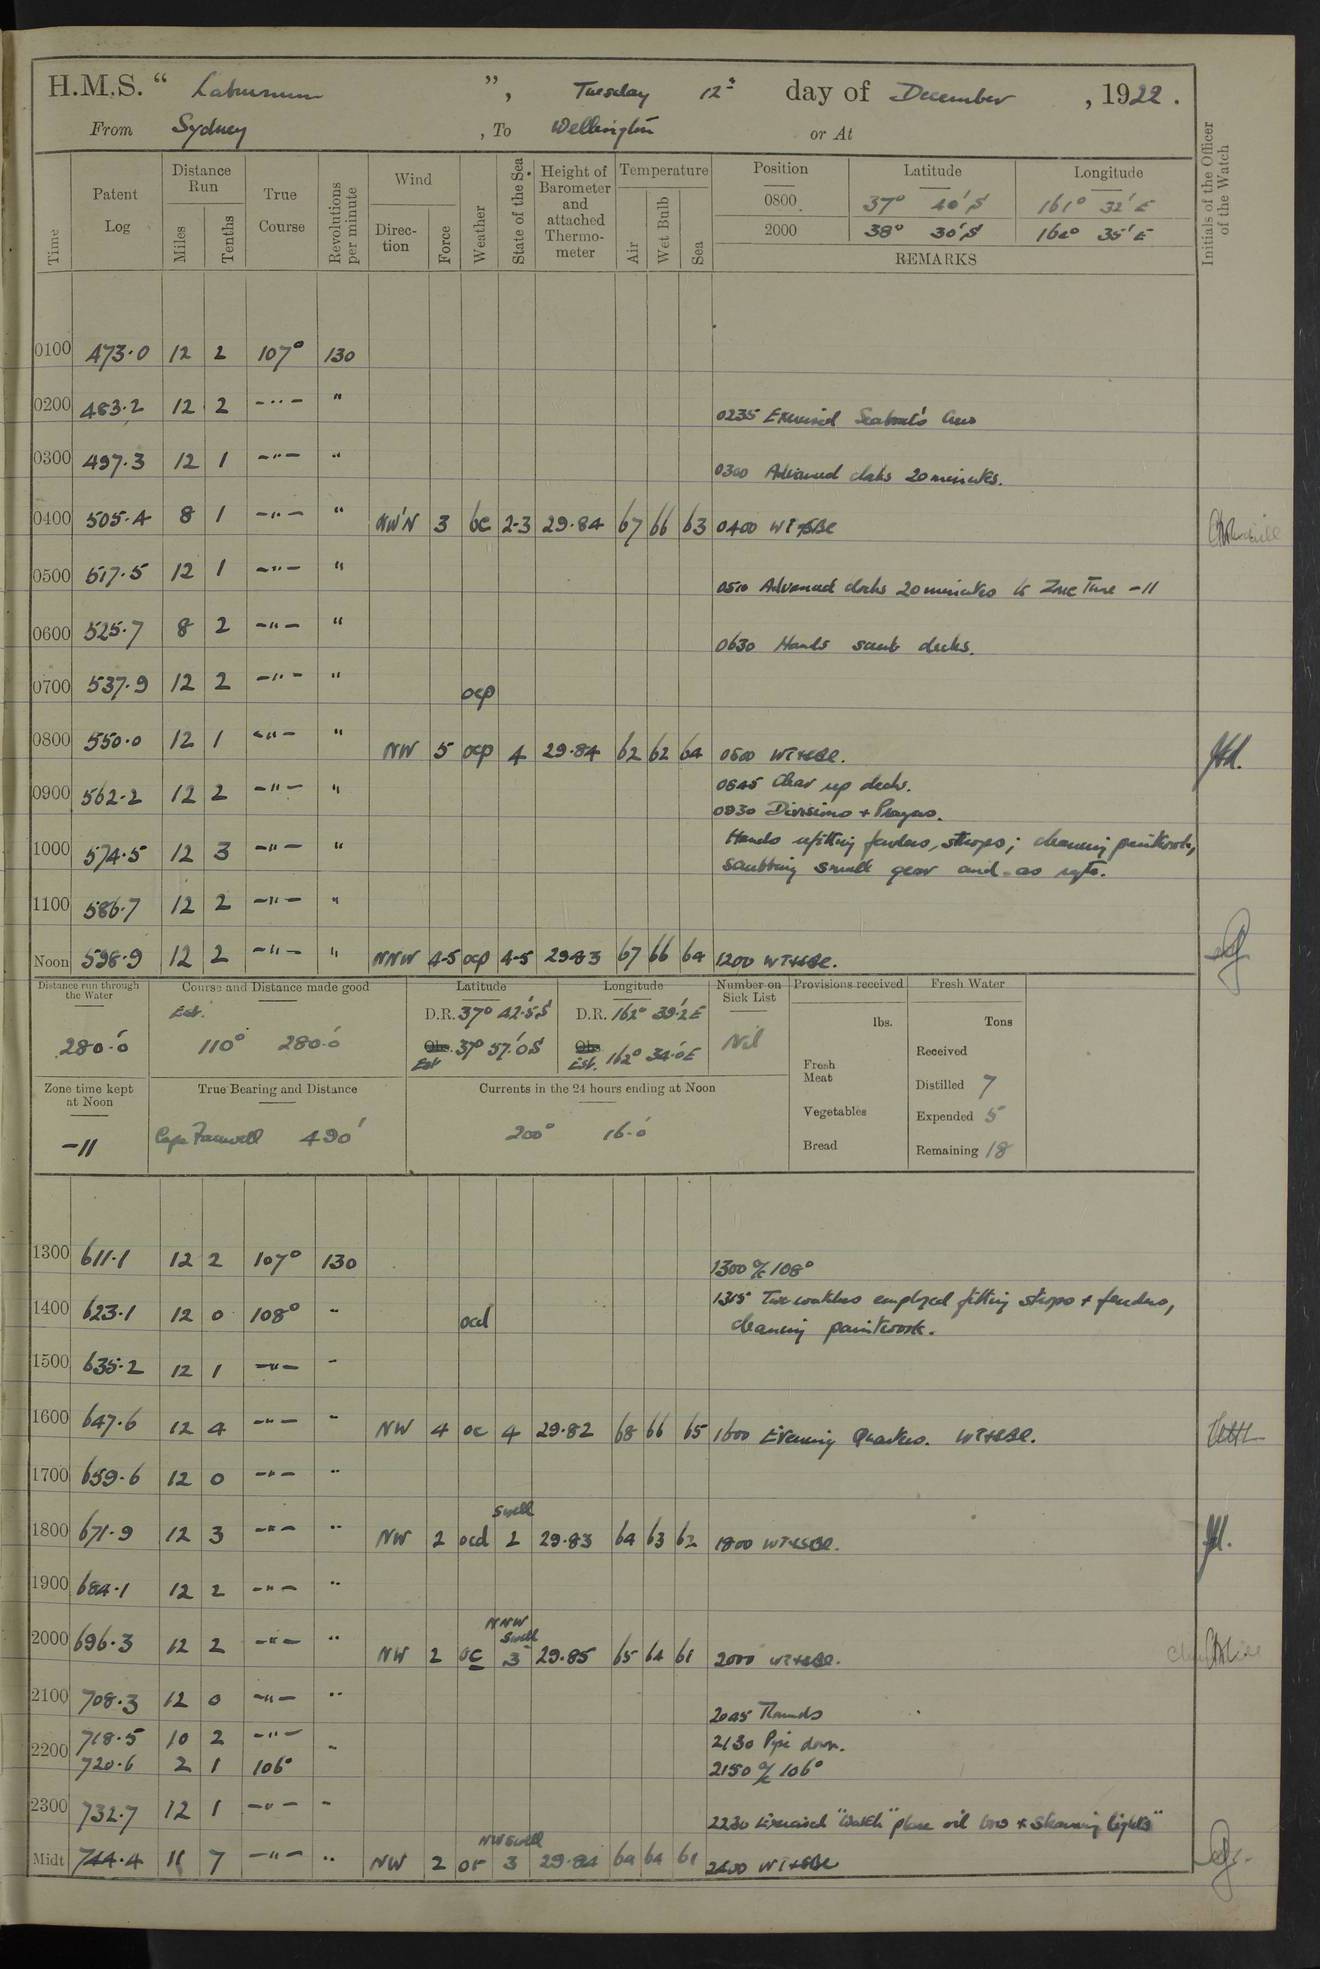 H.M.S. “ Laburnum ”, Tuesday 12th day of December, 1922.
From Sydney, To Wellington or At
Time
Patent Log
Distance Run
Miles
Tenths
True Course
Revolutions per minute
Wind
Direction
Force
Weather
State of the Sea
Height of Barometer and attached Thermometer
Temperature
Air
Wet Bulb
Sea
Position Latitude Longitude
0800 37° 40'S 161° 32'E
2000 38° 30'S 164° 35'E
REMARKS
Initials of the Officer of the Watch
0100 473.0 12 2 107° 130
0200 483.2 12 2 -"- "
0235 Exercised Seaboat's Crew
0300 497.3 12 1 -"- "
0300 Advanced clocks 20 minutes.
0400 505.4 8 1 -"- " NW'N 3 bc 2-3 29.84 67 66 63 0400 WT&SBE
0500 517.5 12 1 -"- "
0510 Advanced clocks 20 minutes to Zone Time -11
0600 525.7 8 2 -"- "
0630 Hands scrub decks.
0700 537.9 12 2 -"- " ocp
0800 550.0 12 1 -"- " NW 5 ocp 4 29.84 62 62 64 0800 WT&SBE.
0845 Clear up decks.
0900 562.2 12 2 -"- "
0930 Divisions + Prayers.
Hands refitting fenders, strops; cleaning paintwork,
1000 574.5 12 3 -"- "
scrubbing small gear and as reqte.
1100 586.7 12 2 -"- "
Noon 598.9 12 2 -"- " NNW 4-5 ocp 4-5 2983 67 66 64 1200 WT&SBE.
Distance run through the Water
280.0'
Course and Distance made good
Est.
110° 280.0'
Latitude
D.R. 37° 42.5'S
Obs. Est. 37° 57.0'S
Longitude
D.R. 162° 39.2'E
Obs Est. 162° 34.0'E
Number on Sick List
Nil
Provisions received
lbs.
Fresh Meat
Vegetables
Bread
Fresh Water
Tons
Received
Distilled 7
Expended 5
Remaining 18
Zone time kept at Noon
-11
True Bearing and Distance
Cape Farewell 490'
Currents in the 24 hours ending at Noon
200° 16.0'
1300 611.1 12 2 107° 130 1300 a/c 108°
1315 Two watches employed fitting strops + fenders,
1400 623.1 12 0 108° " ocd
cleaning paintwork.
1500 635.2 12 1 -"- "
1600 647.6 12 4 -"- " NW 4 oc 4 29.82 68 66 65 1600 Evening Quarters. WT&SBE.
1700 659.6 12 0 -"- "
Swell
1800 671.9 12 3 -"- " NW 2 ocd 2 29.83 64 63 62 1800 WT&SBE.
1900 684.1 12 2 -"- "
NNW Swell
2000 696.3 12 2 -"- " NW 2 oc 3 29.85 65 64 61 2000 WT&SBE.
2100 708.3 12 0 -"- "
2045 Rounds
718.5 10 2 -"- 2130 Pipe down.
2200 720.6 2 1 106° " 2150 a/c 106°
2300 732.7 12 1 -"- "
2230 Exercised "Watch" place oil bow + steaming lights"
NW Swell
Midt 744.4 11 7 -"- " NW 2 or 3 29.84 64 64 61 2400 WT&SBE